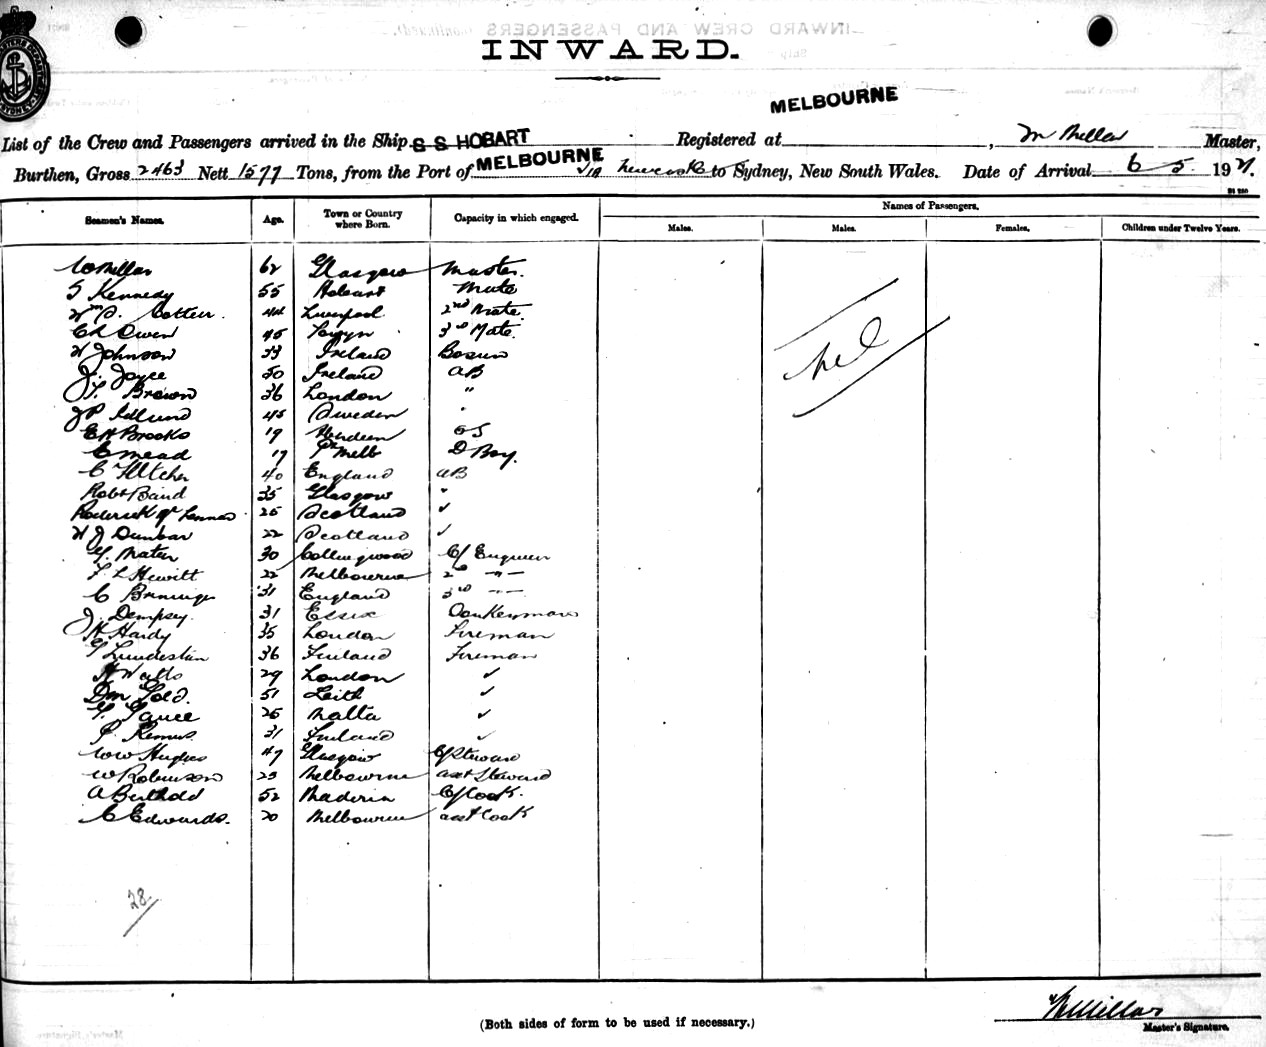 INWARD.
MELBOURNE
List of the Crew and Passengers arrived in the Ship S S HOBART Registered at , Master,
Burthen, Gross 2463 Nett 1577 Tons, from the Port of MELBOURNE via Newcastle to Sydney, New South Wales. Date of Arrival 6 5 1921.
Seamen's Names. Age. Town or Country where Born. Capacity in which engaged. Names of Passengers.
Males. Males. Females. Children under Twelve Years.
W Millar 62 Glasgow Master.
S Kennedy 55 Hobart Mate
44 Liverpool 2nd Mate
Owen 45 3rd Mate.
W Johnson 33 Ireland Bosun
J. Joyce 50 Ireland AB
Brown 36 London "
J P Idlund 45 Sweden "
E H Brooks 19 Aberdeen OS
C Mead 17 Pt Melb D Boy.
C Fletcher 40 England AB
Robt Baird 35 Glasgow "
Roderick 25 Scotland ✓
W J Dunbar 22 Scotland ✓
30 Collingwood C/ Engineer
F L Hewitt 22 Melbourne 2nd -"-
C 31 England 3rd -"-
J. Dempsey. 31 Essex Donkeyman
H Hardy 35 London Fireman
36 Finland Fireman
H Watts 29 London ✓
51 Leith ✓
25 Malta ✓
31 Finland ✓
W W Hughes 47 Glasgow C/Steward
W Robinson 23 Melbourne asst Steward
A Berthold 52 Maderia C/Cook.
C Edwards. 20 Melbourne asst Cook
nil
28
W Millar
(Both sides of form to be used if necessary.)
Master's Signature.